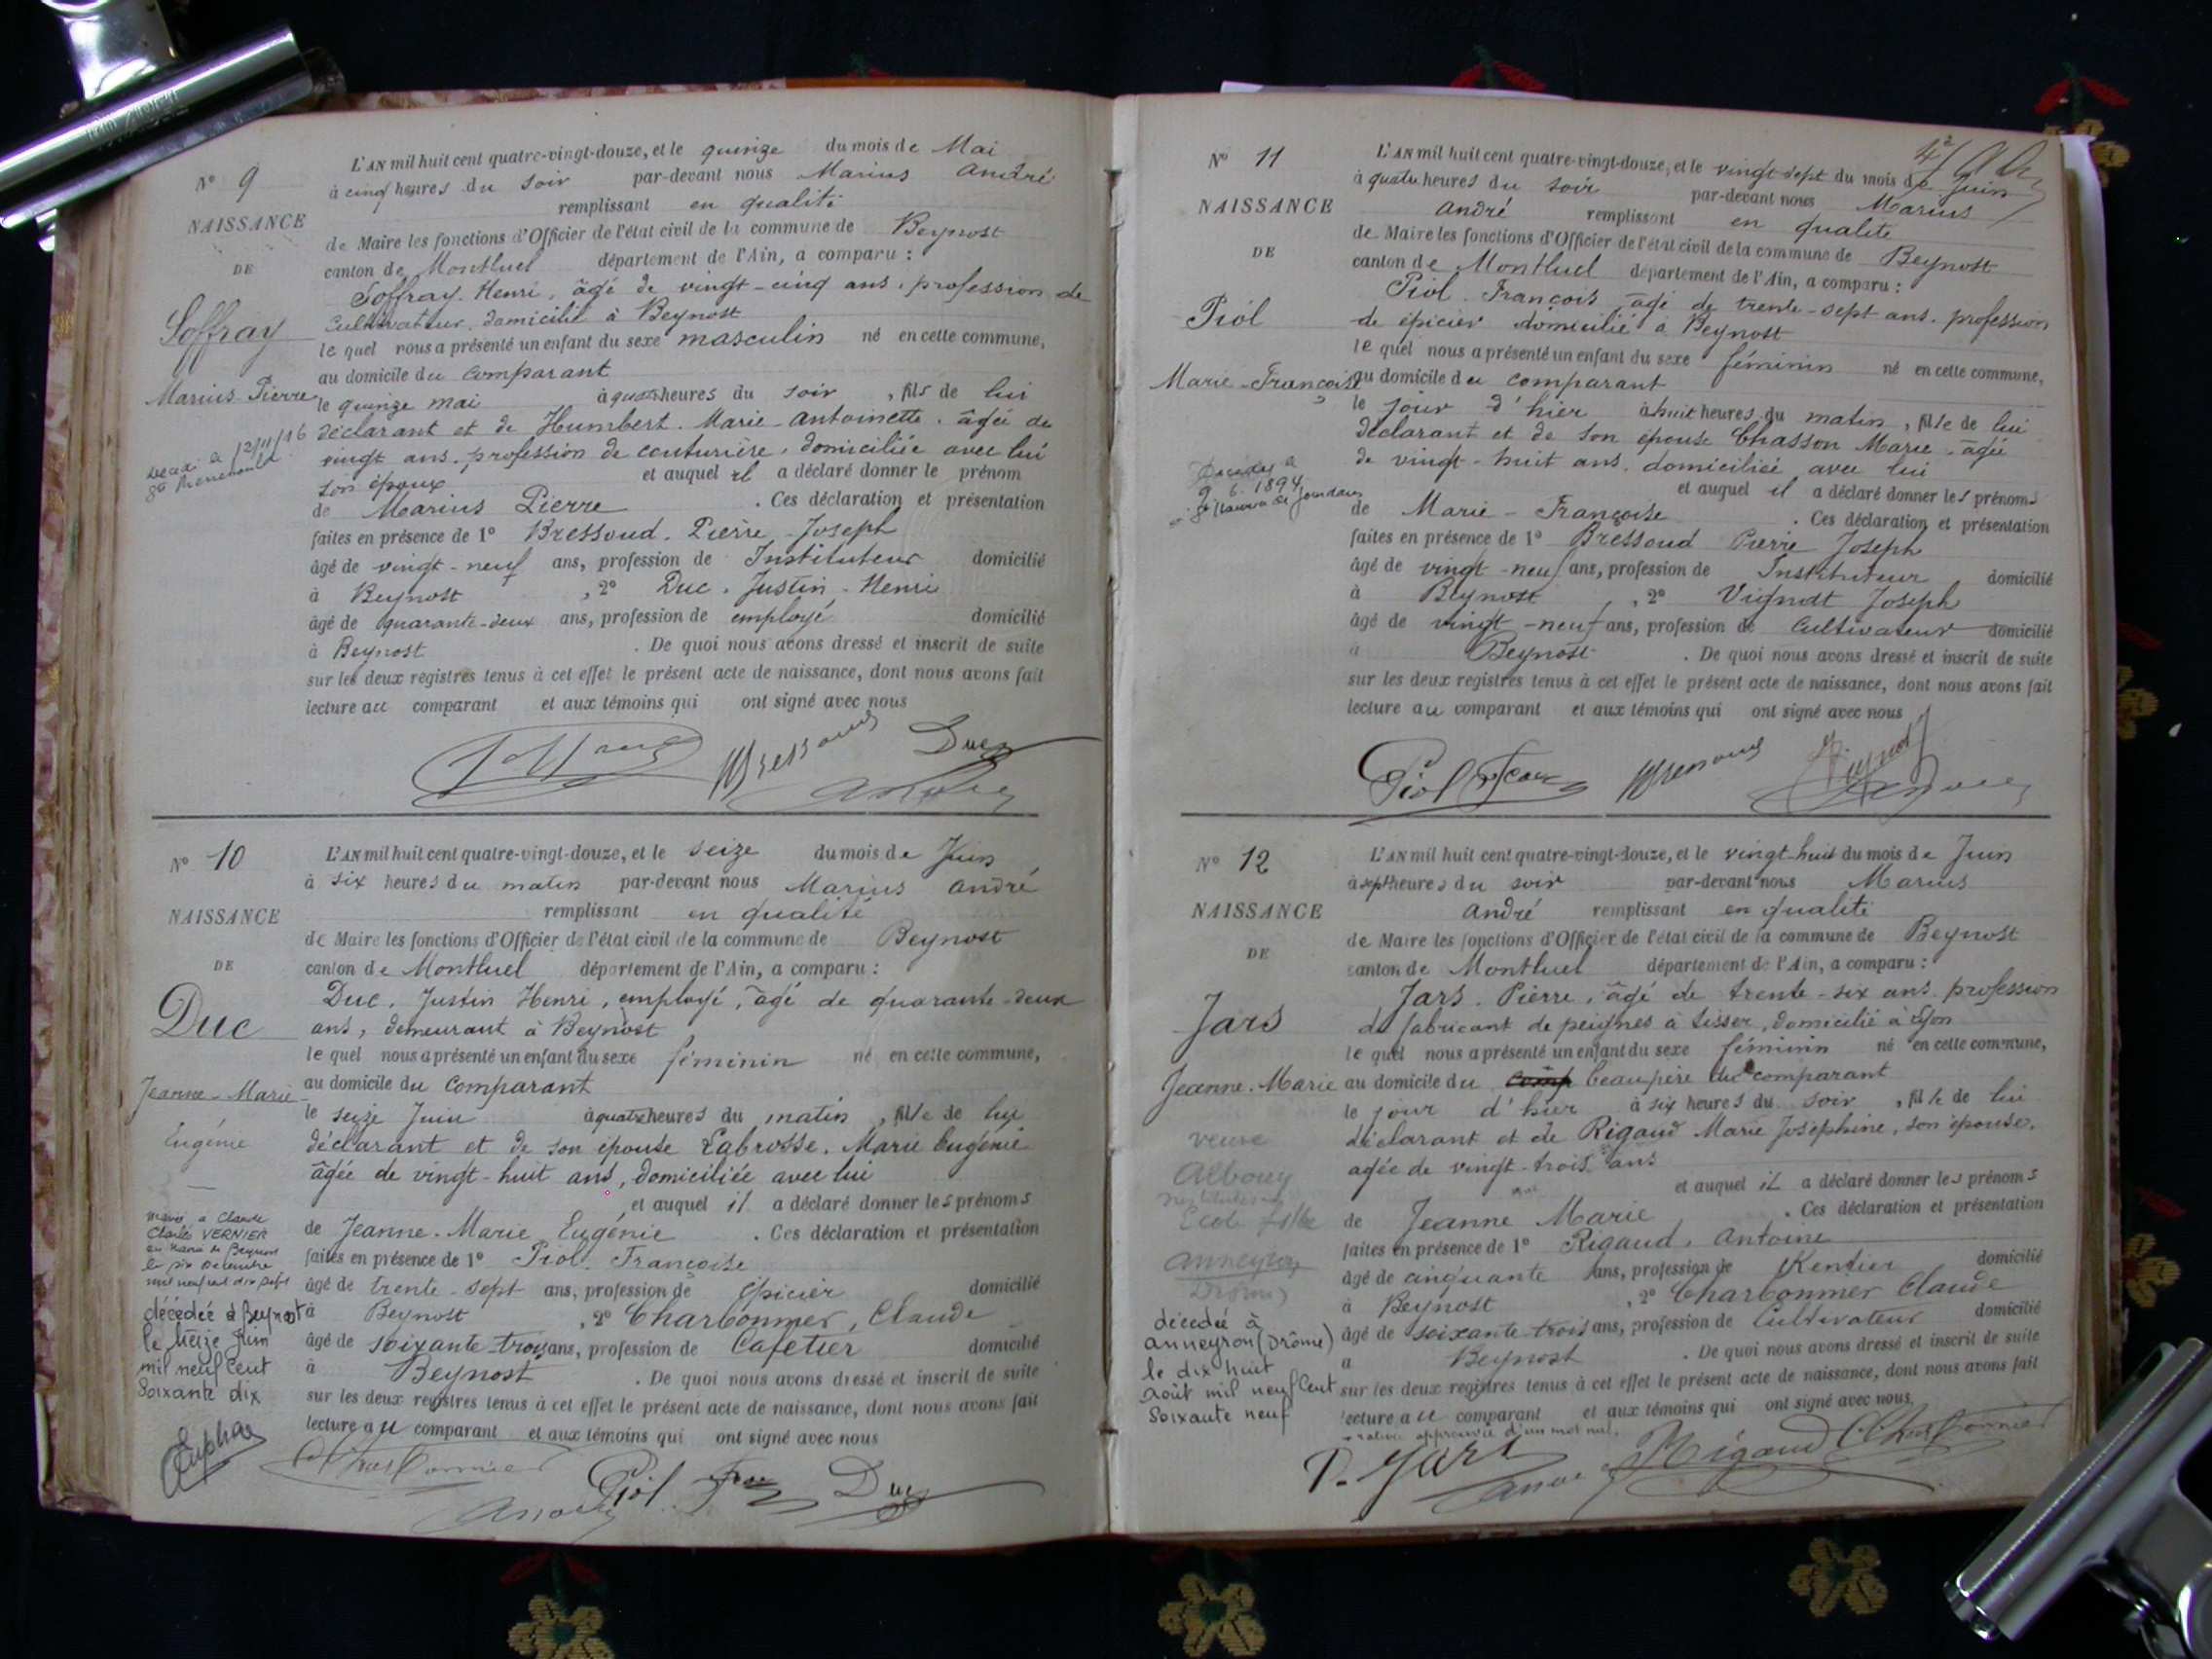 N° 9
NAISSANCE
DE
Soffray
Marius Pierre
décédé le 12/11/16
L'AN mil huit cent quatre-vingt-douze, et le quinze du mois de Mai
à cinq heures du soir par-devant nous Marius André
remplissant en qualité
de Maire les fonctions d'Officier de l'état civil de la commune de Beynost
canton de Montluel département de l'Ain, a comparu :
Soffray Henri, âgé de vingt-cinq ans, profession de
cultivateur, domicilié à Beynost
lequel nous a présenté un enfant du sexe masculin né en cette commune,
au domicile du comparant
le quinze mai à quatre heures du soir, fils de lui
déclarant et de Humbert Marie-Antoinette, âgée de
vingt ans, profession de couturière, domiciliée avec lui
son époux et auquel il a déclaré donner le prénom
de Marius Pierre. Ces déclaration et présentation
faites en présence de 1° Bressoud Pierre Joseph
âgé de vingt-neuf ans, profession de Instituteur domicilié
à Beynost, 2° Duc Justin-Henri
âgé de quarante-deux ans, profession de employé domicilié
à Beynost. De quoi nous avons dressé et inscrit de suite
sur les deux registres tenus à cet effet le présent acte de naissance, dont nous avons fait
lecture au comparant et aux témoins qui ont signé avec nous
Bressoud Duc
N° 10
NAISSANCE
DE
Duc
Jeanne-Marie
Eugénie
Mariée à Claude
Charles VERNIER
en Mairie de Beynost
le six Décembre
mil neuf cent dix sept
décédée à Beynost
le treize Juin
mil neuf cent
soixante dix
L'AN mil huit cent quatre-vingt-douze, et le seize du mois de Juin
à six heures du matin par-devant nous Marius André
remplissant en qualité
de Maire les fonctions d'Officier de l'état civil de la commune de Beynost
canton de Montluel département de l'Ain, a comparu :
Duc, Justin Henri, employé, âgé de quarante-deux
ans, demeurant à Beynost
lequel nous a présenté un enfant du sexe féminin né en cette commune,
au domicile du comparant
le seize Juin à quatre heures du matin, fille de lui
déclarant et de son épouse Labrosse, Marie Eugénie
âgée de vingt-huit ans, domiciliée avec lui
et auquel il a déclaré donner les prénoms
de Jeanne-Marie Eugénie. Ces déclaration et présentation
faites en présence de 1° Piol, Françoise
âgé de trente-sept ans, profession de épicier domicilié
à Beynost, 2° Charbonnier, Claude
âgé de soixante-trois ans, profession de Cafetier domicilié
à Beynost. De quoi nous avons dressé et inscrit de suite
sur les deux registres tenus à cet effet le présent acte de naissance, dont nous avons fait
lecture au comparant et aux témoins qui ont signé avec nous
Charbonnier Piol Duc
André
N° 11
NAISSANCE
DE
Piol
Marie-Françoise
Décédée à
9.6.1894
L'AN mil huit cent quatre-vingt-douze, et le vingt-sept du mois de Juin
à quatre heures du soir par-devant nous Marius
André remplissant en qualité
de Maire les fonctions d'Officier de l'état civil de la commune de Beynost
canton de Montluel département de l'Ain, a comparu :
Piol François, âgé de trente-sept ans, profession
de épicier domicilié à Beynost
lequel nous a présenté un enfant du sexe féminin né en cette commune,
au domicile du comparant
le jour d'hier à huit heures du matin, fille de lui
déclarant et de son épouse Chasson Marie, âgée
de vingt-huit ans, domiciliée avec lui
et auquel il a déclaré donner les prénoms
de Marie-Françoise. Ces déclaration et présentation
faites en présence de 1° Bressoud Pierre Joseph
âgé de vingt-neuf ans, profession de Instituteur domicilié
à Beynost, 2° Vignott Joseph
âgé de vingt-neuf ans, profession de Cultivateur domicilié
à Beynost. De quoi nous avons dressé et inscrit de suite
sur les deux registres tenus à cet effet le présent acte de naissance, dont nous avons fait
lecture au comparant et aux témoins qui ont signé avec nous
Piol Bressoud
N° 12
NAISSANCE
DE
Jars
Jeanne-Marie
veuve
Albouy
Ecole fille
Anneyron
Drôme
décédée à
Anneyron (Drôme)
le dix huit
Août mil neuf cent
Soixante neuf
L'AN mil huit cent quatre-vingt-douze, et le vingt-huit du mois de Juin
à sept heures du soir par-devant nous Marius
André remplissant en qualité
de Maire les fonctions d'Officier de l'état civil de la commune de Beynost
canton de Montluel département de l'Ain, a comparu :
Jars, Pierre, âgé de trente-six ans profession
de fabricant de peignes à tisser, domicilié à Lyon
lequel nous a présenté un enfant du sexe féminin né en cette commune,
au domicile du comp beaupère du comparant
le jour d'hier à six heures du soir, fille de lui
déclarant et de Rigaud Marie Joséphine, son épouse,
agée de vingt-trois ans
et auquel il a déclaré donner les prénoms
de Jeanne Marie. Ces déclaration et présentation
faites en présence de 1° Rigaud, Antoine
âgé de cinquante ans, profession de Rentier domicilié
à Beynost, 2° Charbonnier Claude
âgé de soixante-trois ans, profession de Cultivateur domicilié
à Beynost. De quoi nous avons dressé et inscrit de suite
sur les deux registres tenus à cet effet le présent acte de naissance, dont nous avons fait
lecture au comparant et aux témoins qui ont signé avec nous.
rature approuvée d'un mot nul.
P. Jars Rigaud Charbonnier